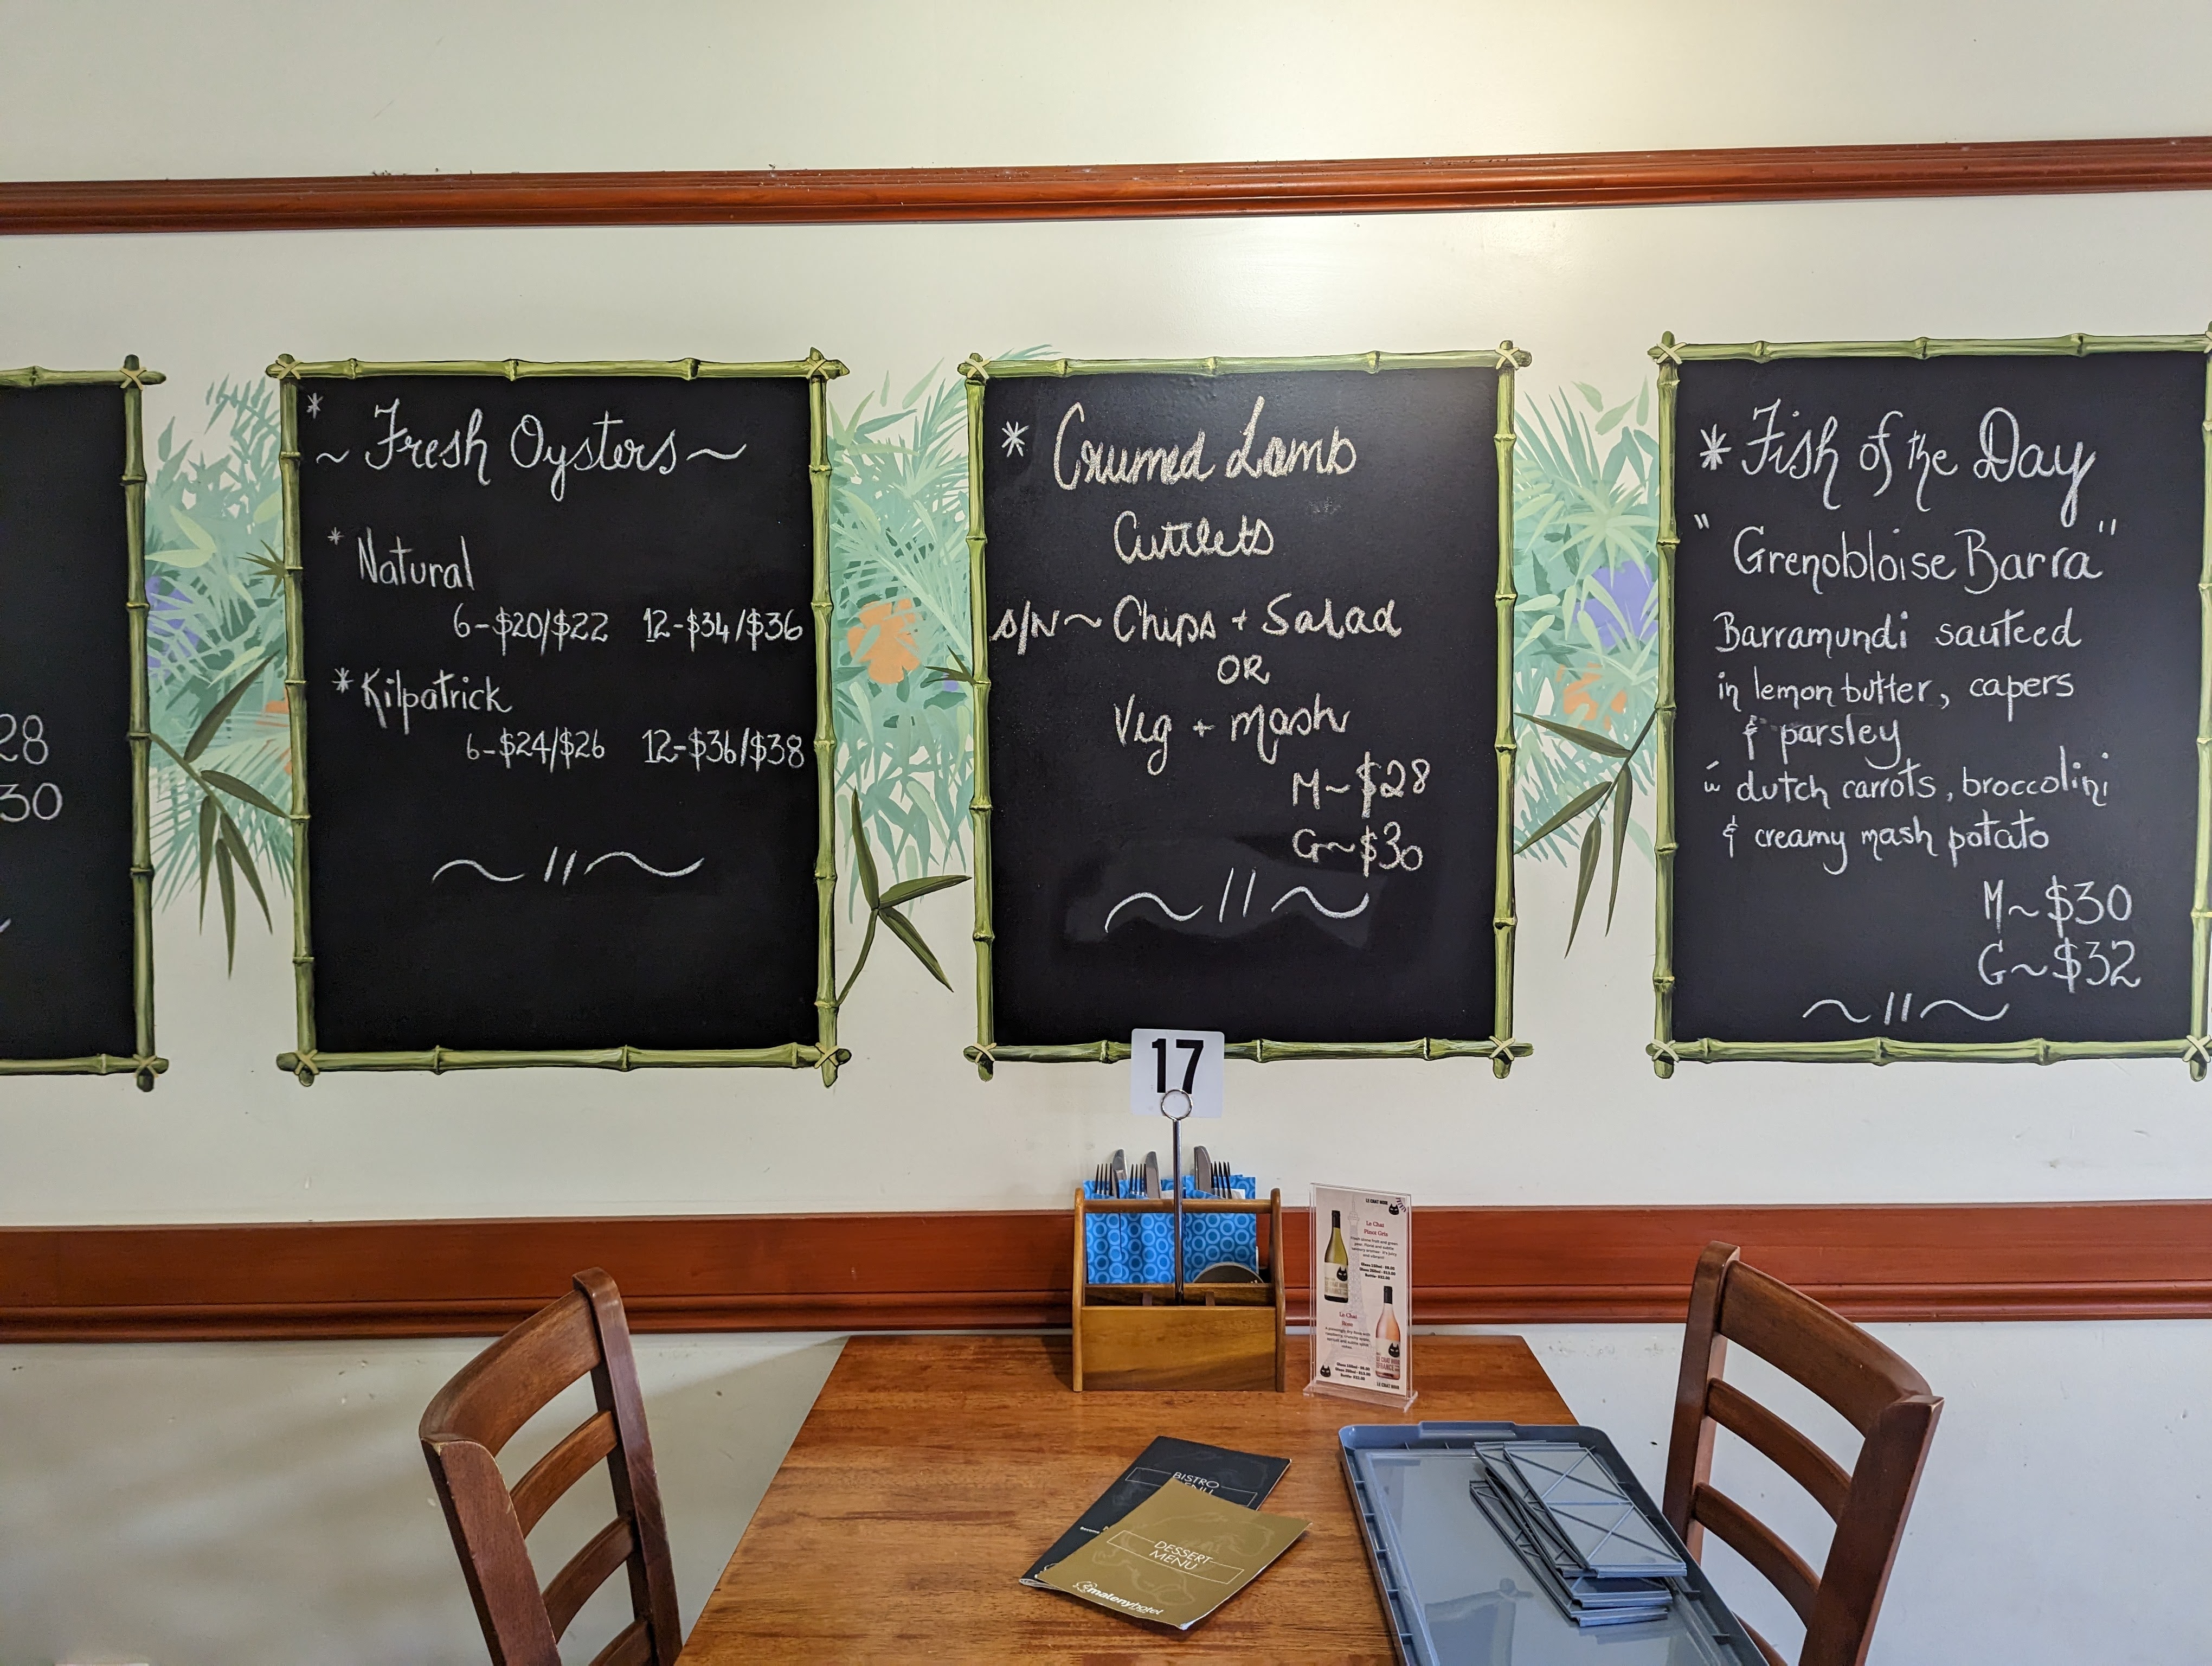 28
30
*
~ Fresh Oysters ~
* Natural
6-$20/$22 12-$34/$36
* Kilpatrick
6-$24/$26 12-$36/$38
~ // ~
* Crumed Lamb
Cuttlets
S/N ~ Chips + Salad
OR
Veg + mash
M ~ $28
G ~ $30
~ // ~
* Fish of the Day
" Grenobloise Barra "
Barramundi sauteed
in lemon butter, capers
& parsley
w dutch carrots, broccolini
& creamy mash potato
M ~ $30
G ~ $32
~ // ~
17
LE CHAT NOIR
Le Chat
Pinot Gris
Le Chat
LE CHAT NOIR
BISTRO
MENU
DESSERT
MENU
malenyhotel